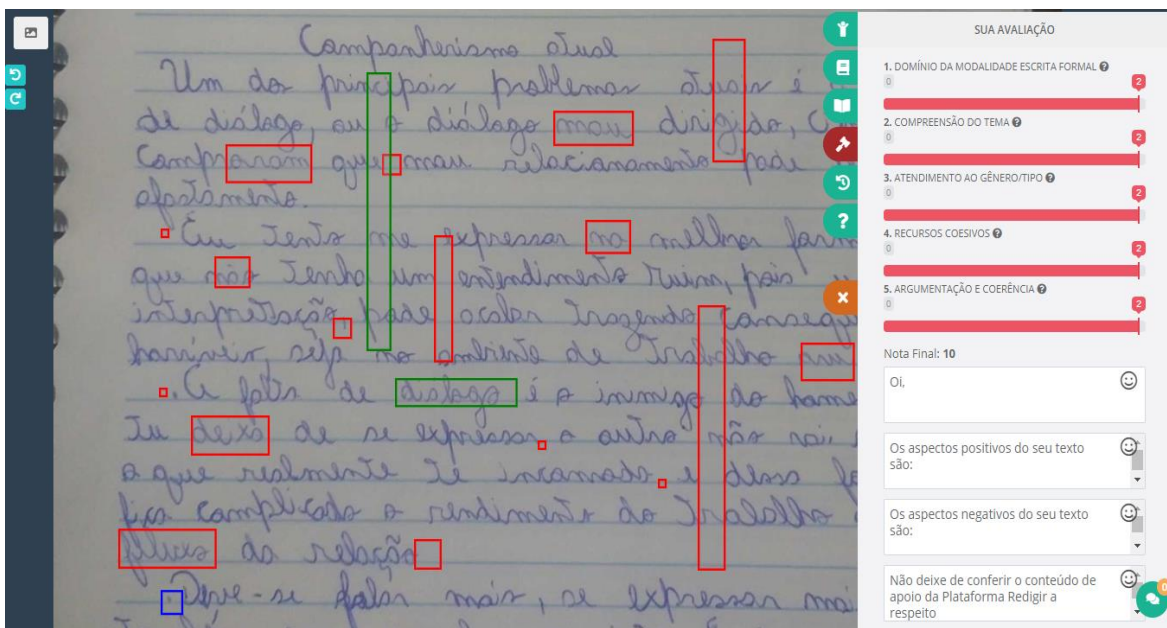 Companherismo atual
Um dos principais problemas atuais é
de diálogo, ou o diálogo mau dirigido,
que mau relacionamento pode
afastamento.
Eu tento me expressar na melhor
que não tenha um entendimento ruim, pois
interpretação, pode acabar trazendo
horríveis, seja no ambiente de trabalho
A falta de diálogo é o inimigo do
Tu deixa de se expressar o outro não vai
o que realmente te incomoda e dessa
fica complicado o rendimento do trabalho
da relação
Deve-se falar mais, se expressar
SUA AVALIAÇÃO
1. DOMÍNIO DA MODALIDADE ESCRITA FORMAL
0 2
2. COMPREENSÃO DO TEMA
0 2
3. ATENDIMENTO AO GÊNERO/TIPO
0 2
4. RECURSOS COESIVOS
0 2
5. ARGUMENTAÇÃO E COERÊNCIA
0 2
Nota Final: 10
Oi,
Os aspectos positivos do seu texto
são:
Os aspectos negativos do seu texto
são:
Não deixe de conferir o conteúdo de
apoio da Plataforma Redigir a
respeito